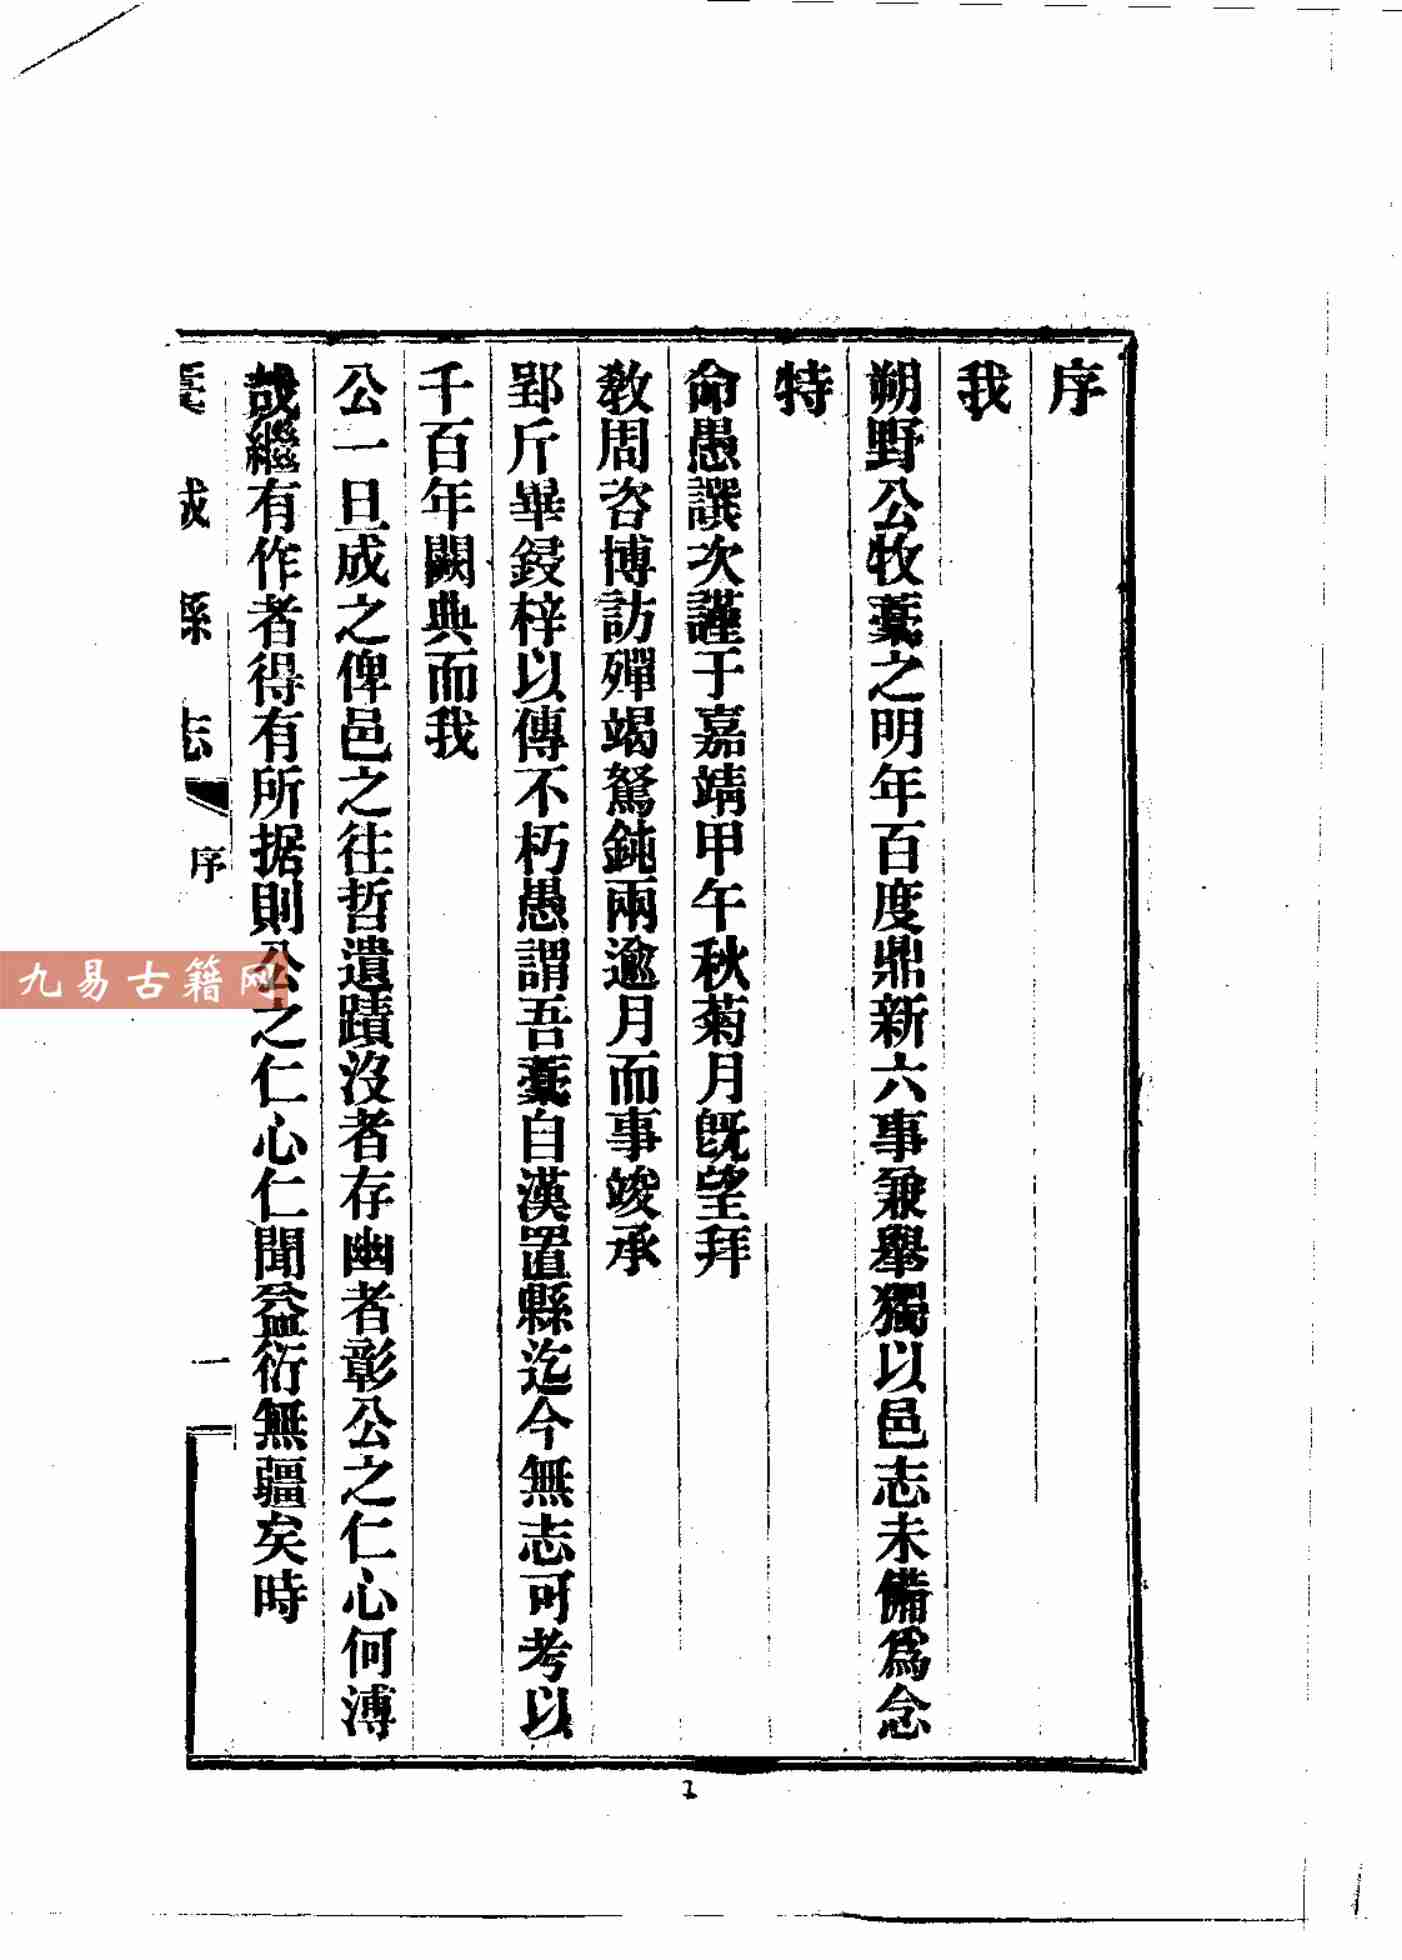 序
我
朔野公牧藁之明年百度鼎新六事兼舉獨以邑志未備爲念
特
命愚譔次謹于嘉靖甲午秋菊月旣望拜
教周咨博訪殫竭駑鈍兩逾月而事竣承
郢斤畢鋟梓以傳不朽愚謂吾藁自漢置縣迄今無志可考以
千百年闕典而我
公一旦成之俾邑之往哲遺蹟沒者存幽者彰公之仁心何溥
哉繼有作者得有所据則公之仁心仁聞益衍無疆矣時
藁城縣志 序 一
1
九易古籍网